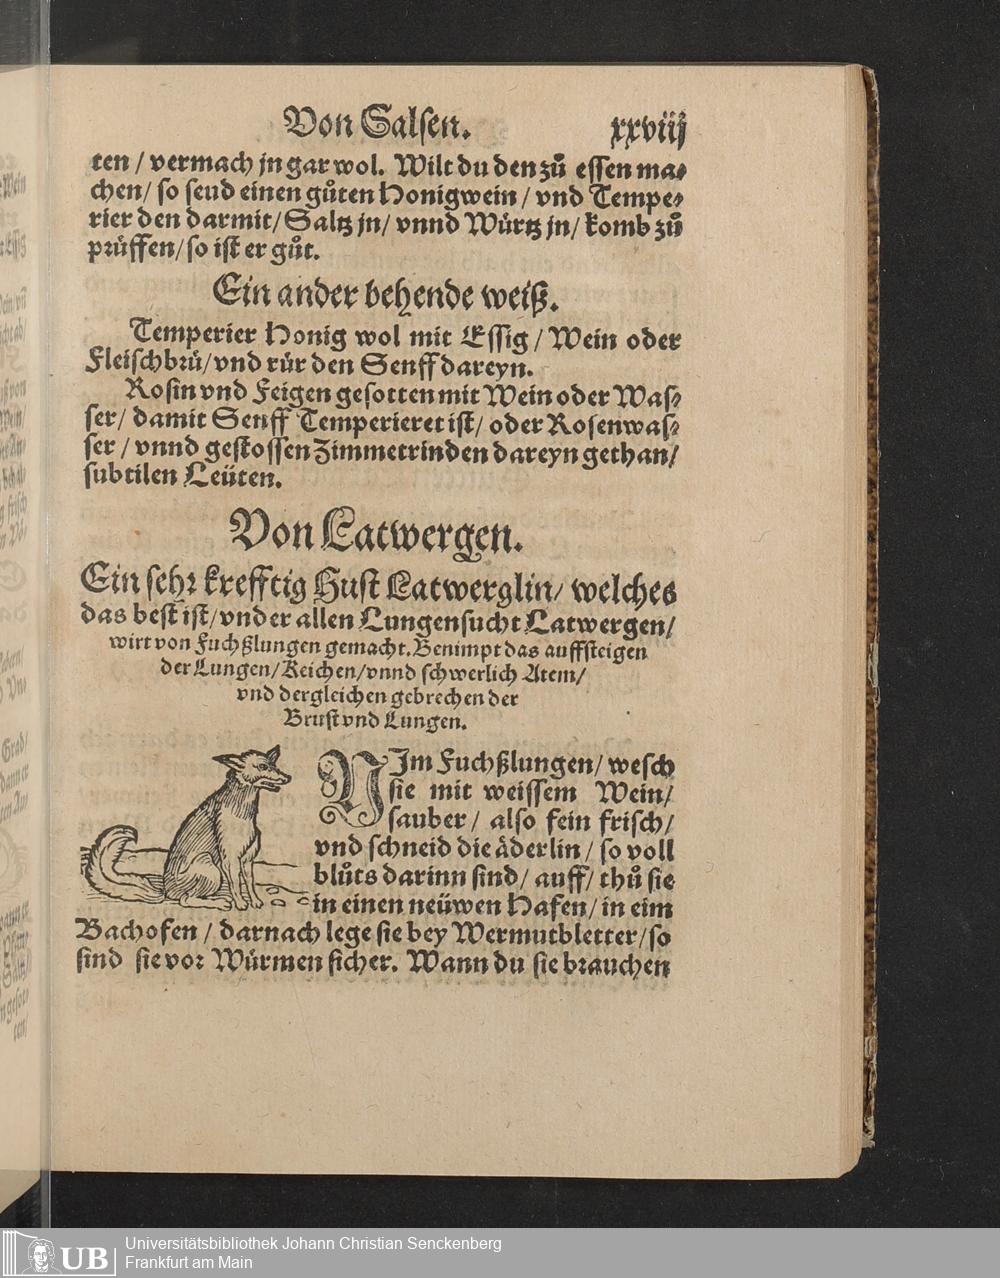 Von Salsen. xxviij
ten / vermach jn gar wol. Wilt du den zů essen ma⸗
chen / so seud einen gůten Honigwein / vnd Tempe⸗
rier den darmit / Saltz jn / vnnd Würtz jn / komb zů
prüffen / so ist er gůt.
Ein ander behende weiß.
Temperier Honig wol mit Essig / Wein oder
Fleischbrü / vnd rür den Senff dareyn.
Rosin vnd Feigen gesotten mit Wein oder Was⸗
ser / damit Senff Temperieret ist / oder Rosenwas⸗
ser / vnnd gestossen Zimmetrinden dareyn gethan /
subtilen Leüten.
Von Latwergen.
Ein sehr krefftig Hust Latwerglin / welches
das best ist / vnder allen Lungensucht Latwergen /
wirt von Fuchßlungen gemacht. Benimpt das auffsteigen
der Lungen / Keichen / vnnd schwerlich Atem /
vnd dergleichen gebrechen der
Brust vnd Lungen.
NJm Fuchßlungen / wesch
sie mit weissem Wein /
sauber / also fein frisch /
vnd schneid die äderlin / so voll
blůts darinn sind / auff / thů sie
in einen neüwen Hafen / in eim
Bachofen / darnach lege sie bey Wermutbletter / so
sind sie vor Würmen sicher. Wann du sie brauchen
UB Universitätsbibliothek Johann Christian Senckenberg
Frankfurt am Main